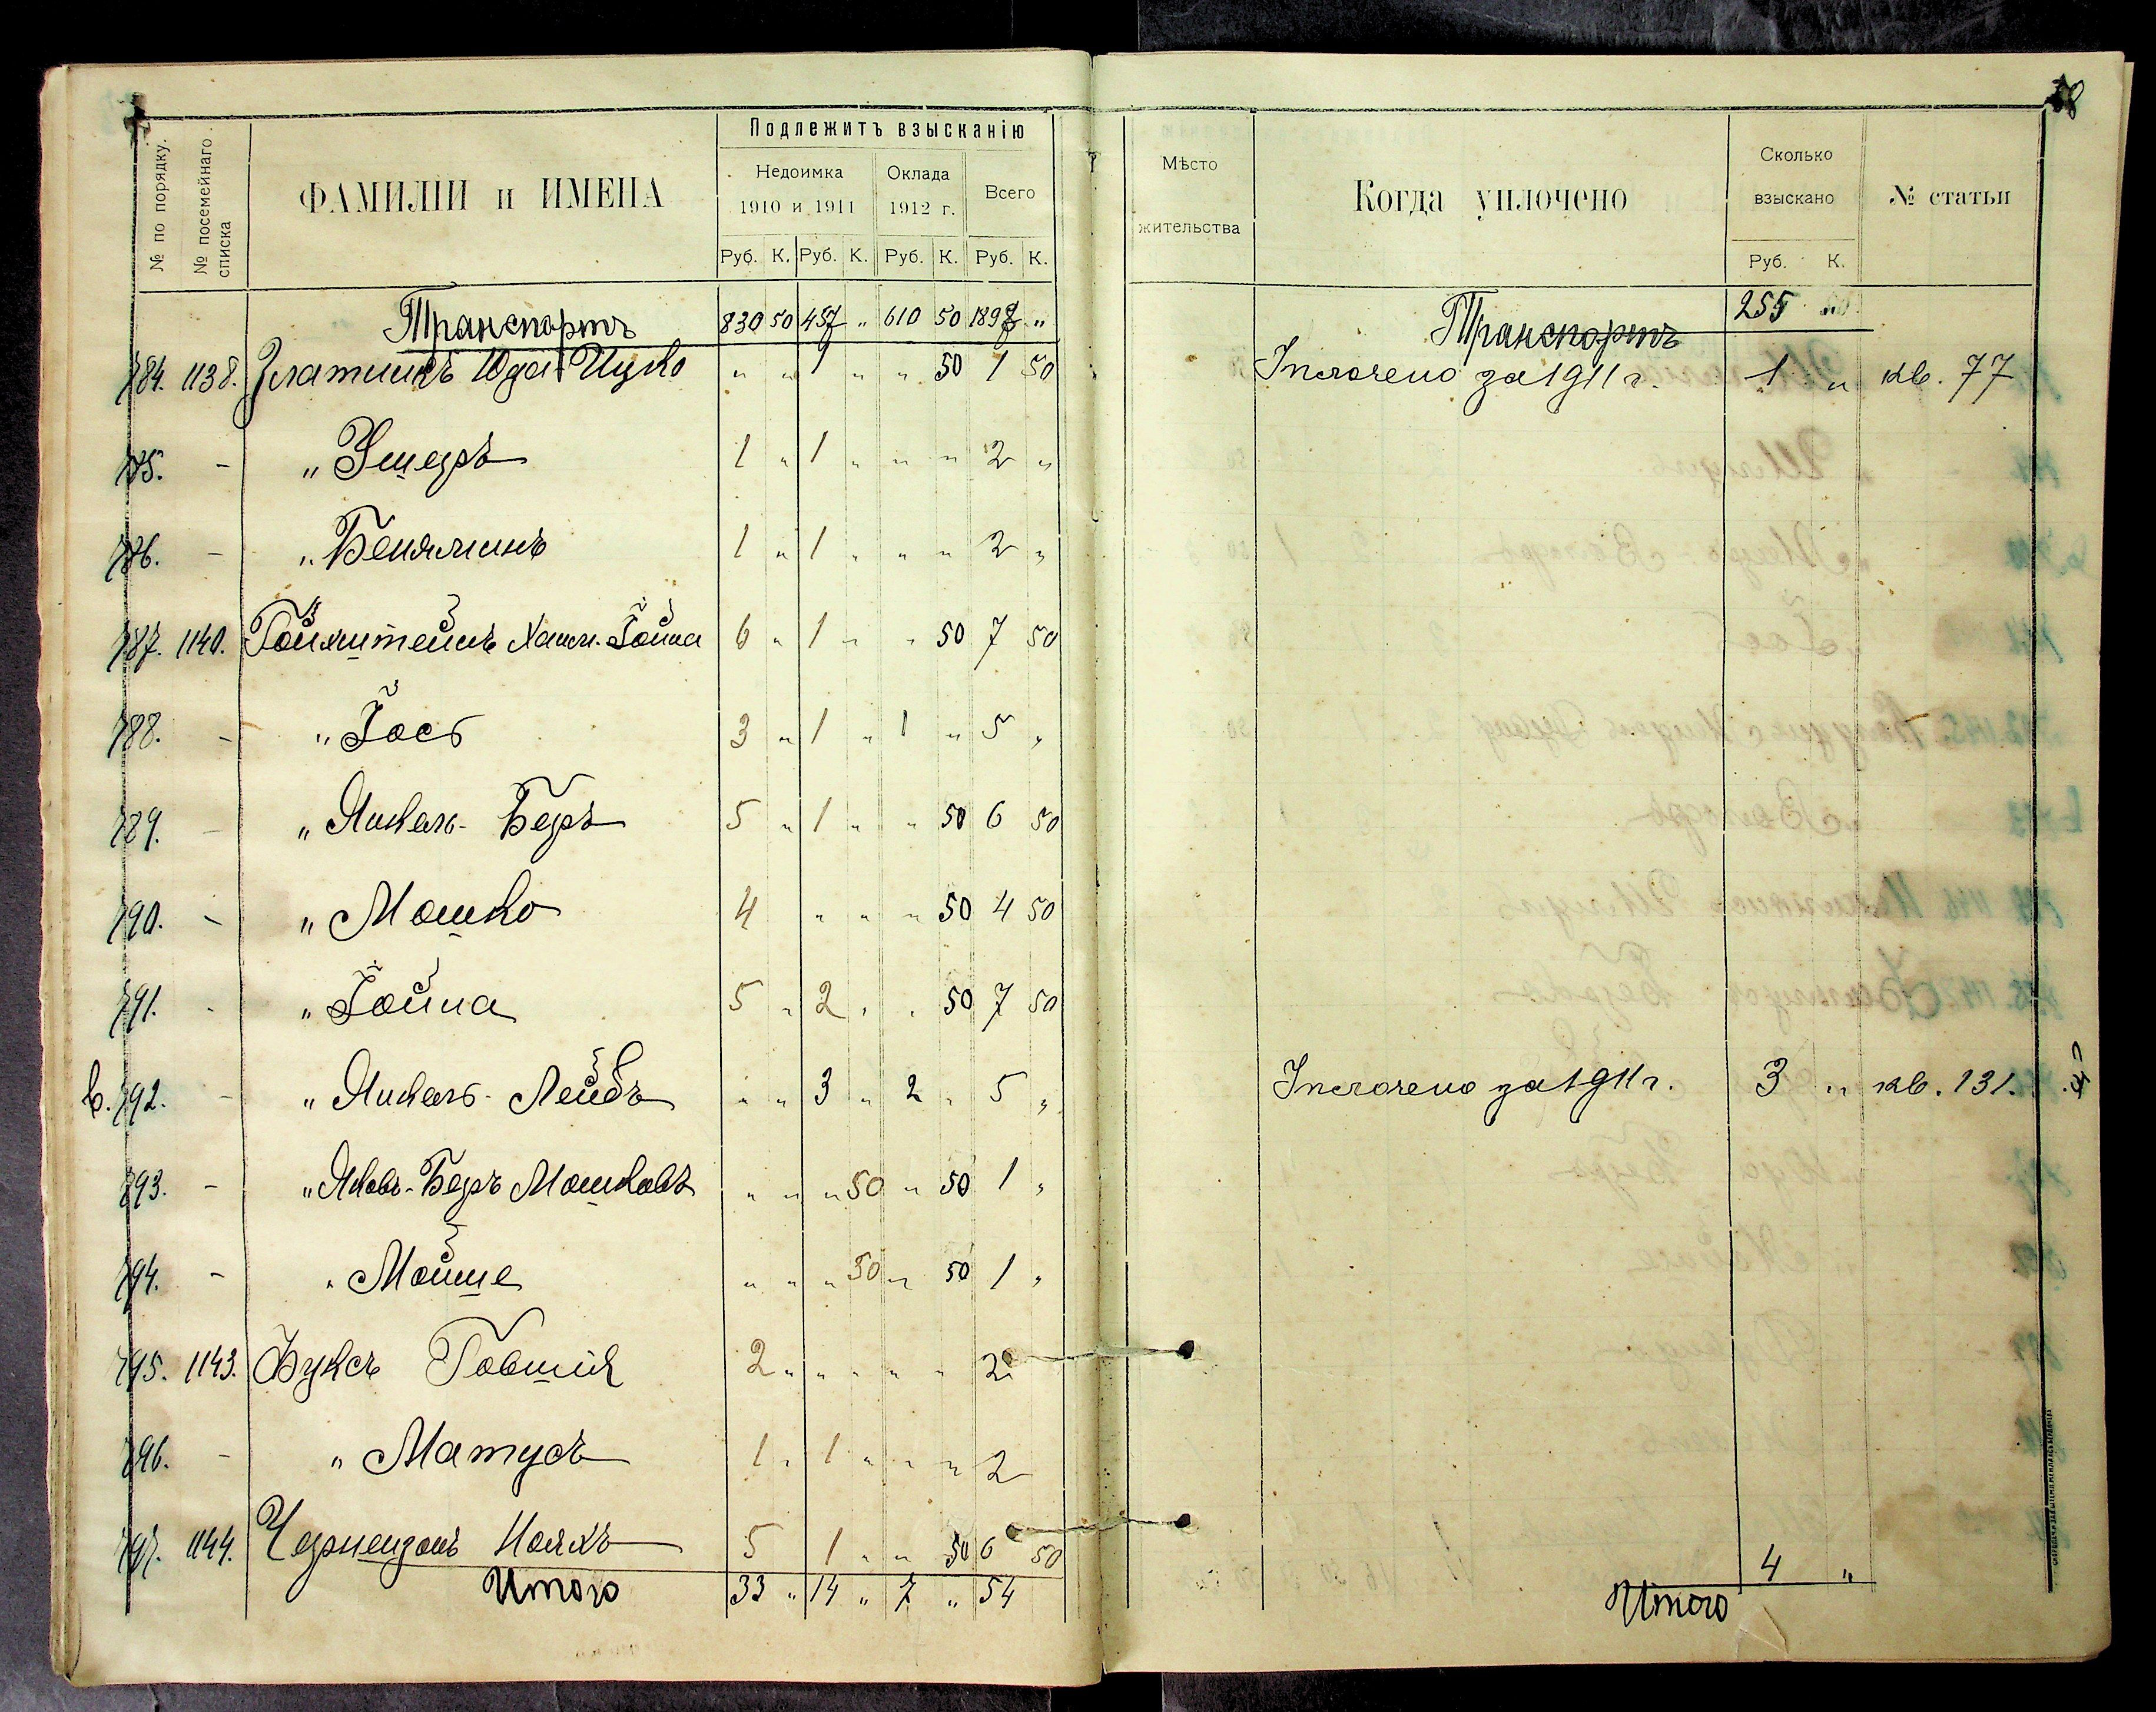 28
№ по порядку.
№ посемейнаго списка
ФАМИЛІИ и ИМЕНА
Подлежитъ взысканію
Недоимка 1910 и 1911
Оклада 1912 г.
Всего
Руб. К. Руб. К. Руб. К. Руб. К.
Мѣсто жительства
Когда уплочено
Сколько взыскано
Руб. К.
№ статьи
Транспортъ 830 50 457 " 610 50 1898 " Транспортъ 255
784. 1138. Златникъ Юда Ицко " " 1 " " 50 1 50 Уплочено за 1911 г. 1 " кв. 77
785. - " Ушеръ 1 " 1 " " " 2 "
786. - " Беняминъ 1 " 1 " " " 2 "
787. 1140. Гойхштейнъ Хаим. Іойна 6 " 1 " " 50 7 50
788. - " Іось 3 " 1 " 1 " 5 "
789. - " Янкель-Беръ 5 " 1 " " 50 6 50
790. - " Мошко 4 " " " 50 4 50
791. - " Іойна 5 " 2 " " 50 7 50
в. 792. - " Янкель-Лейбъ " " 3 " 2 " 5 " Уплочено за 1911 г. 3 " кв. 131.
793. - " Яковъ-Беръ Мошковъ " " " 50 " 50 1 "
794. - " Мойше " " " 50 " 50 1 "
795. 1143. Буксъ Говшія 2 " " " " " 2
796. - " Матусъ 1 " 1 " " " 2
797. 1144. Нояхъ 5 1 " " 50 6 50
Итого 33 " 14 " 7 " 54 Итого 4 "